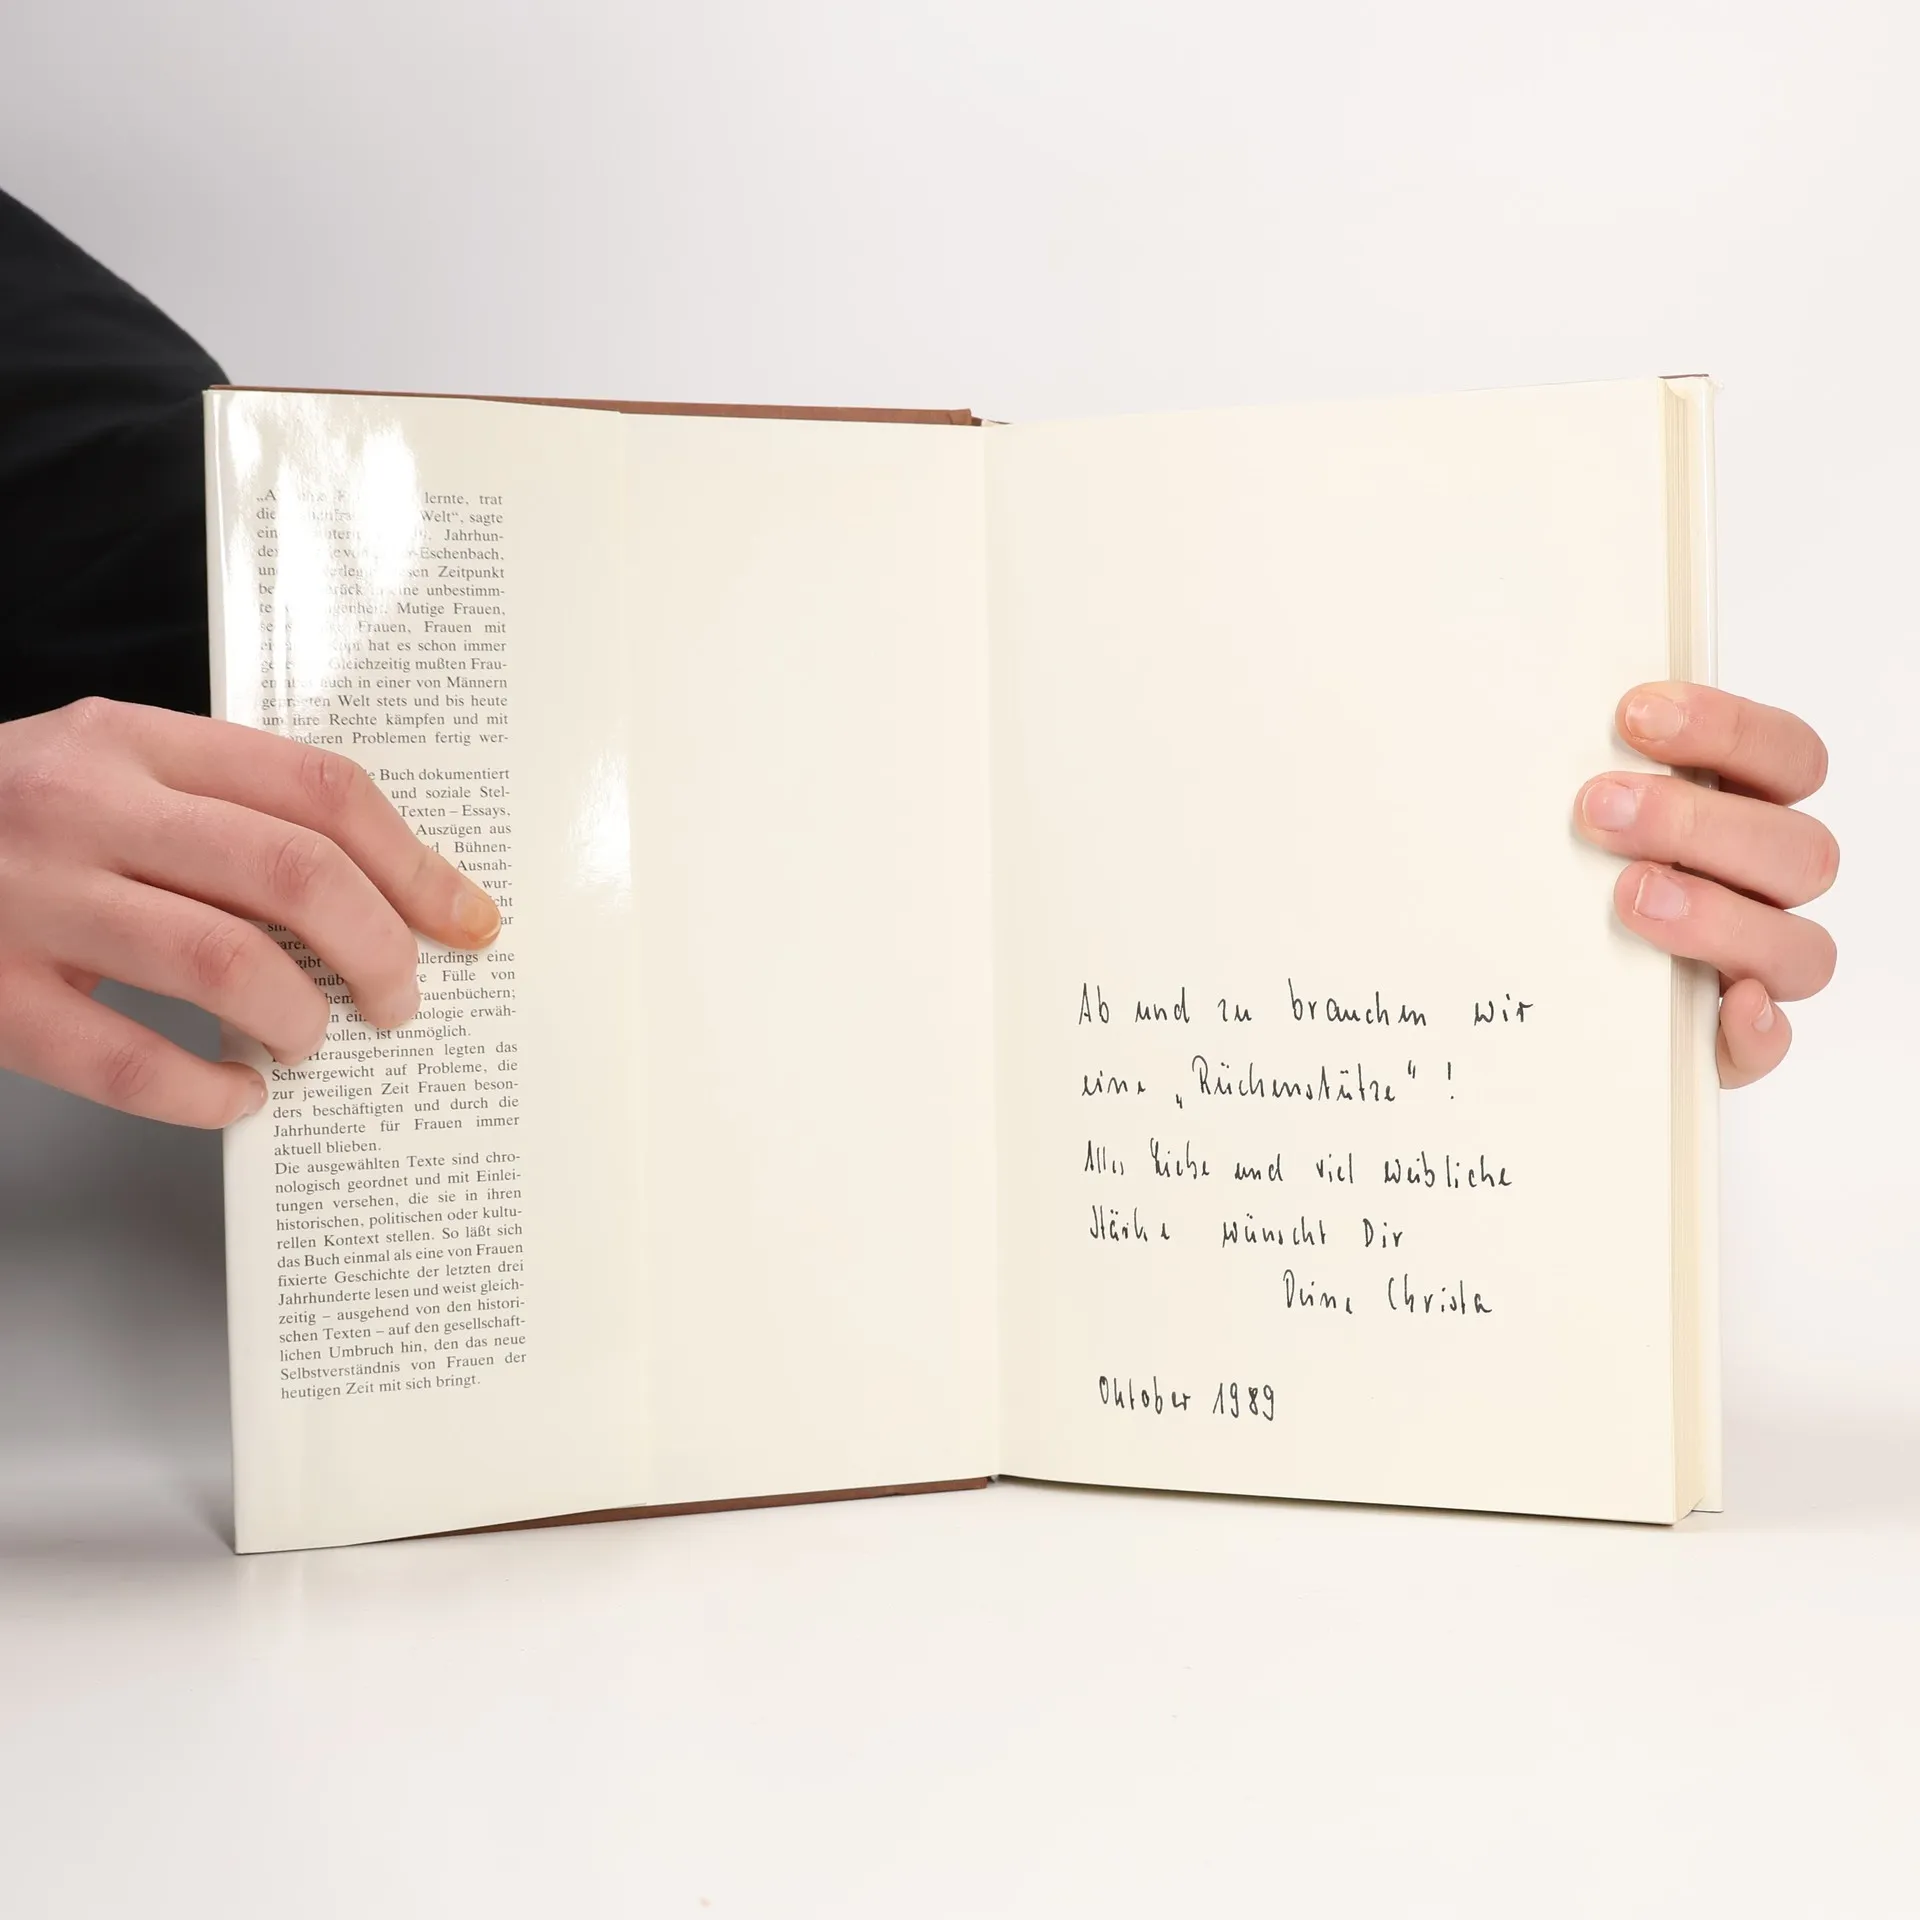 lernte, trat
die Welt“, sagte
Jahrhun-
-Eschenbach,
Zeitpunkt
eine unbestimm-
Mutige Frauen,
Frauen, Frauen mit
hat es schon immer
Gleichzeitig mußten Frau-
auch in einer von Männern
geprägten Welt stets und bis heute
um ihre Rechte kämpfen und mit
Problemen fertig wer-
Buch dokumentiert
und soziale Stel-
Texten – Essays,
Auszügen aus
Bühnen-
Ausnah-
wur-
eine
Fülle von
ist unmöglich.
legten das
Schwergewicht auf Probleme, die
zur jeweiligen Zeit Frauen beson-
ders beschäftigten und durch die
Jahrhunderte für Frauen immer
aktuell blieben.
Die ausgewählten Texte sind chro-
nologisch geordnet und mit Einlei-
tungen versehen, die sie in ihren
historischen, politischen oder kultu-
rellen Kontext stellen. So läßt sich
das Buch einmal als eine von Frauen
fixierte Geschichte der letzten drei
Jahrhunderte lesen und weist gleich-
zeitig – ausgehend von den histori-
schen Texten – auf den gesellschaft-
lichen Umbruch hin, den das neue
Selbstverständnis von Frauen der
heutigen Zeit mit sich bringt.
Ab und zu brauchen wir
eine „Rückenstütze“ !
Alles Liebe und viel weibliche
Stärke wünscht Dir
Deine Christa
Oktober 1989